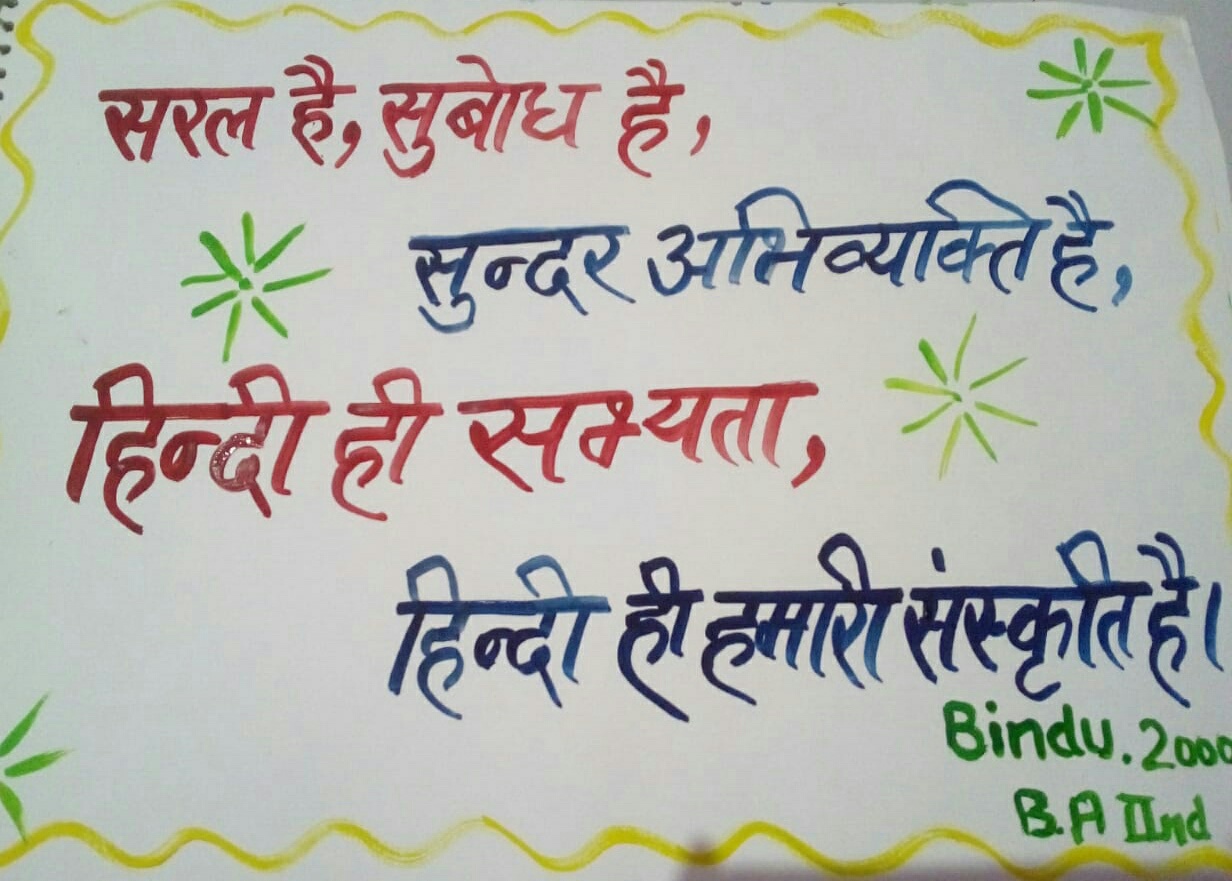 सरल है, सुबोध है,
सुन्दर अभिव्यक्ति है,
हिन्दी ही सभ्यता,
हिन्दी ही हमारी संस्कृति है।
Bindu. 2000
B.A IInd